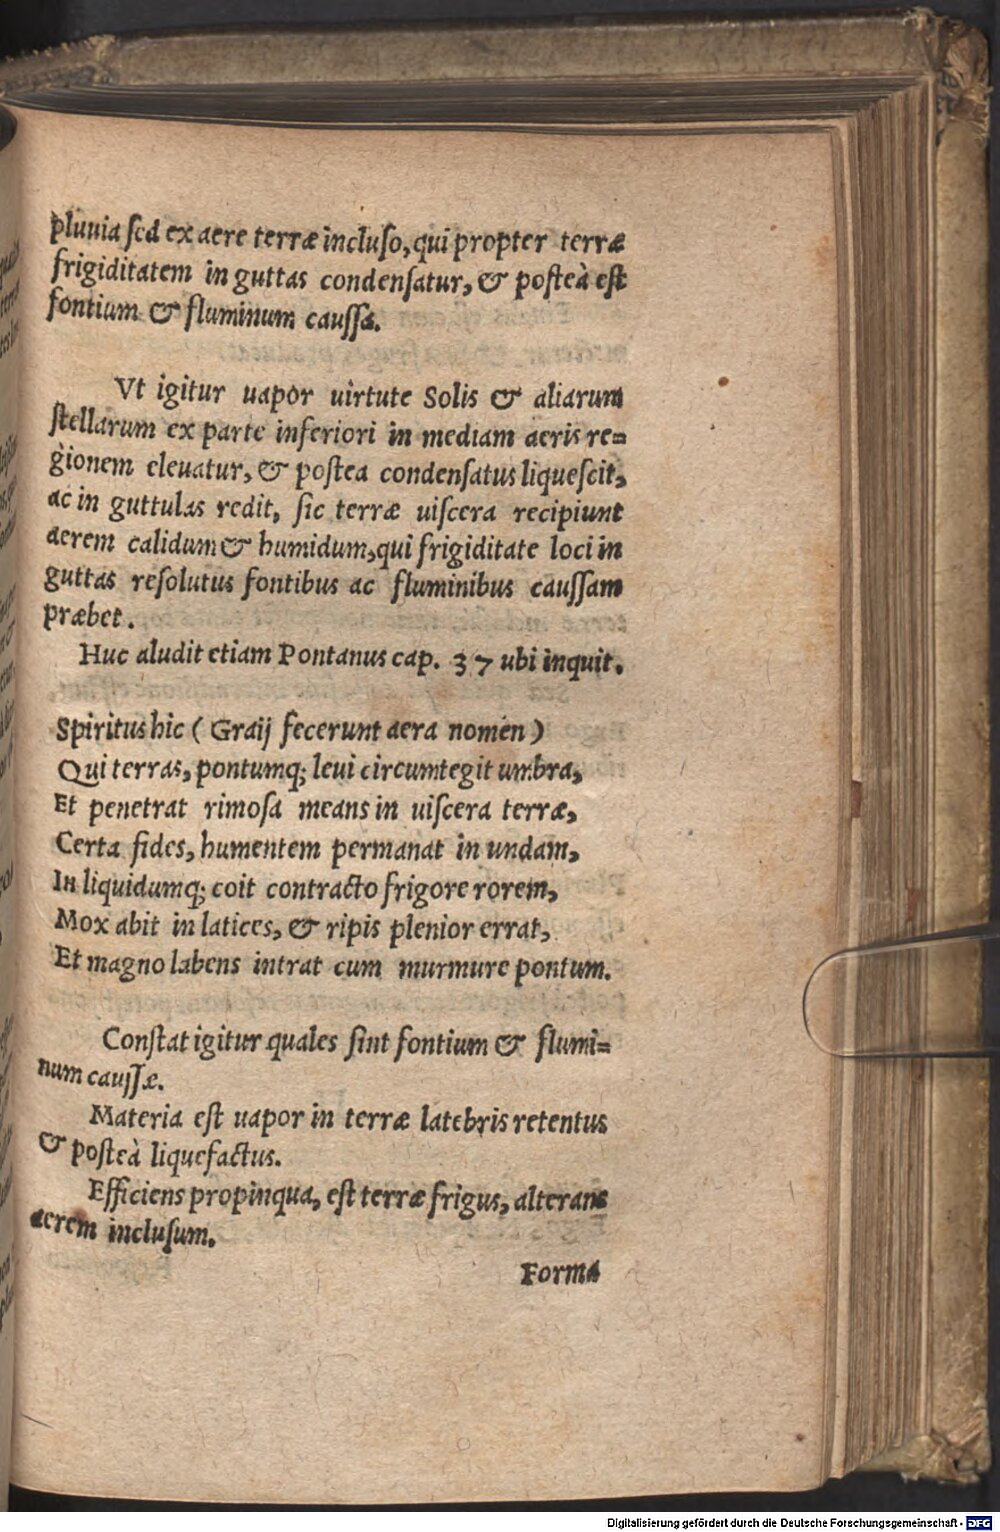 pluuia sed ex aere terræ incluso, qui propter terræ
frigiditatem in guttas condensatur, & posteà est
fontium & fluminum caussa.
Vt igitur uapor uirtute Solis & aliarum
stellarum ex parte inferiori in mediam aeris re=
gionem eleuatur, & postea condensatus liquescit,
ac in guttulas redit, sic terræ uiscera recipiunt
aerem calidum & humidum, qui frigiditate loci in
guttas resolutus fontibus ac fluminibus caussam
præbet.
Huc aludit etiam Pontanus cap. 37 ubi inquit.
Spiritus hic ( Graij fecerunt aera nomen )
Qui terras, pontumq; leui circumtegit umbra,
Et penetrat rimosa means in uiscera terræ,
Certa fides, humentem permanat in undam,
In liquidumq; coit contracto frigore rorem,
Mox abit in latices, & ripis plenior errat,
Et magno labens intrat cum murmure pontum.
Constat igitur quales sint fontium & flumi=
num caussæ.
Materia est uapor in terræ latebris retentus
& posteà liquefactus.
Efficiens propinqua, est terræ frigus, alterans
aerem inclusum.
Forma
Digitalisierung gefördert durch die Deutsche Forschungsgemeinschaft - DFG